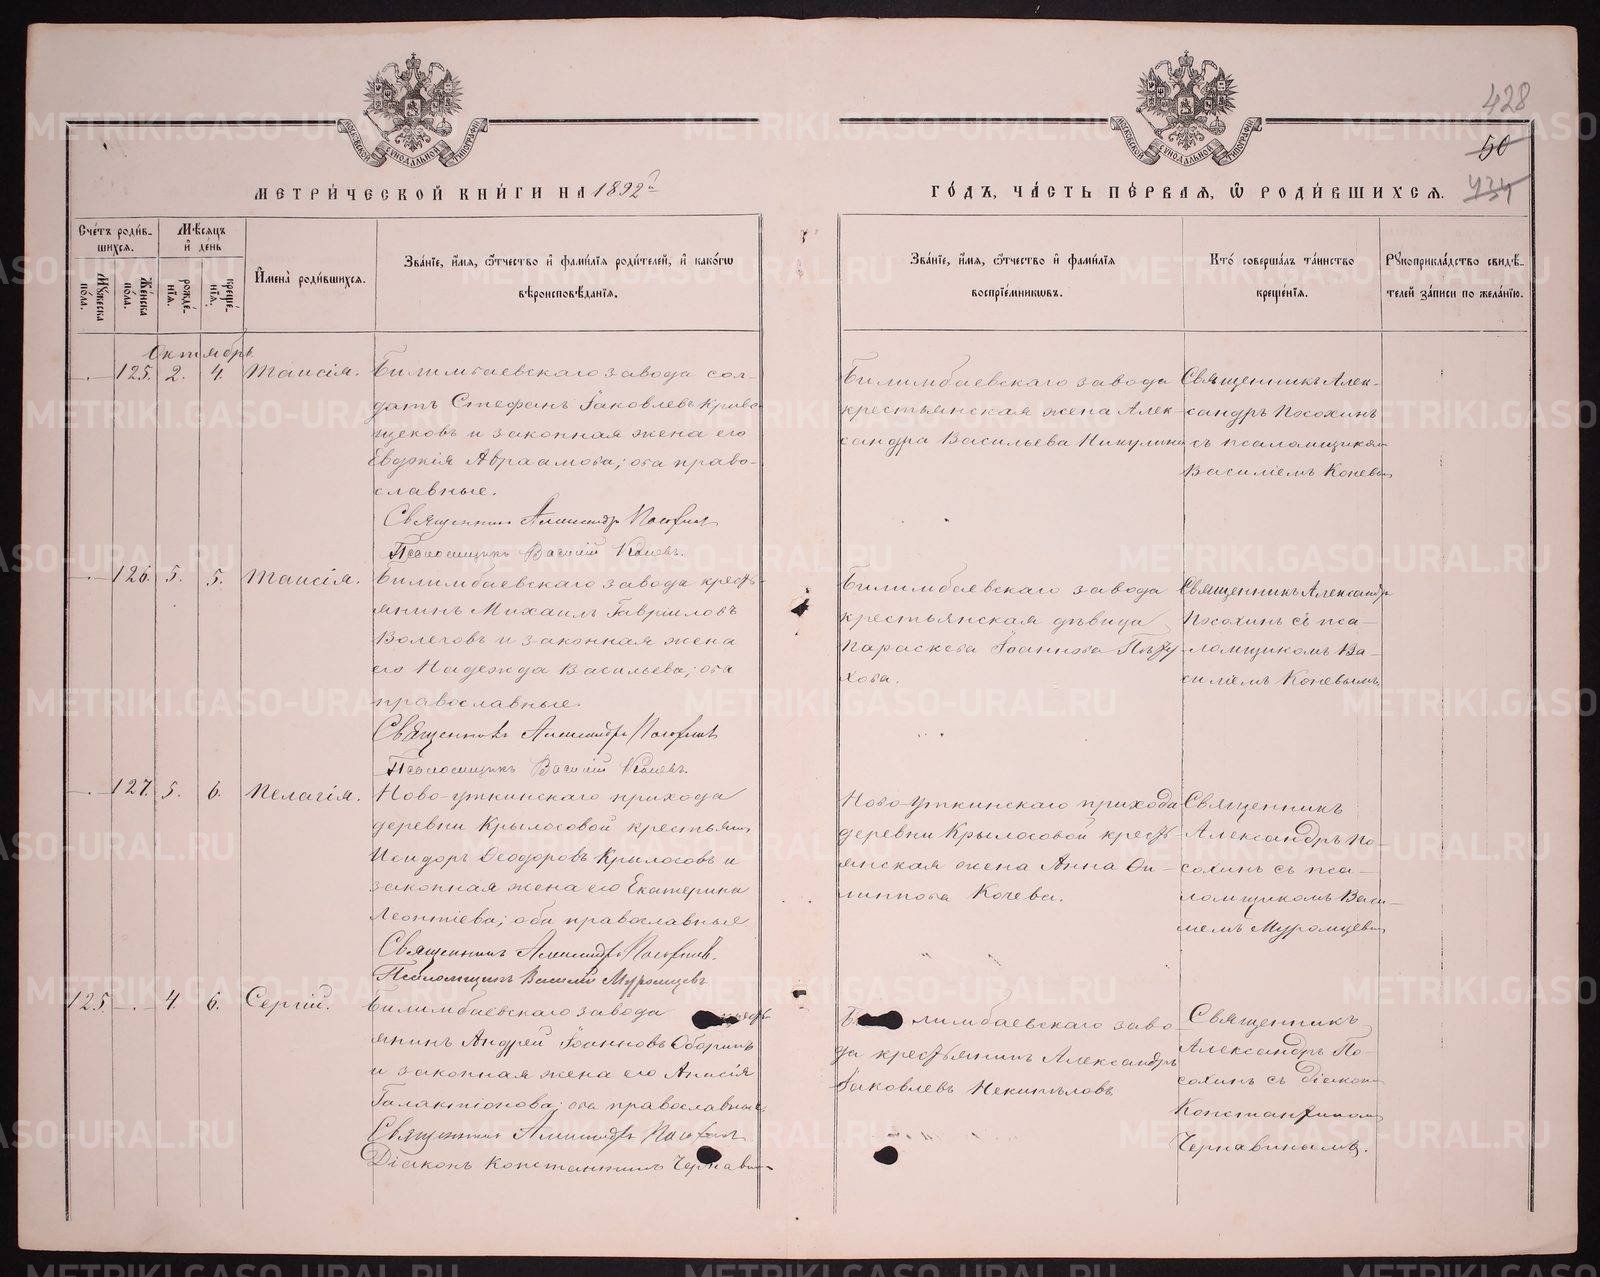 428
50
434
МЕТРИЧЕСКОЙ КНИГИ НА 1892й
ГОДЪ, ЧАСТЬ ПЕРВАЯ, Ѿ РОДИВШИХСЯ.
Счетъ родившихся.
Мѣсяцъ и день
Мужеска пола.
Женска пола.
рожденїя.
крещенїя.
Имена родившихся.
Званїе, имя, ѿчество и фамилїя родителей, и какогѡ
вѣроисповѣданїя.
Званїе, имя, ѿчество и фамилїя
воспрїемникѡвъ.
Кто совершалъ таинство
крещенїя.
Рукоприкладство свидѣтелей записи по желанїю.
Октябрь
125. 2. 4. Таисія.
Билимбаевскаго завода сол-
датъ Стефанъ Іаковлевъ Криво-
щековъ и законная жена его
Евдокія Авраамова; оба право-
славные.
Священникъ Александръ Посохинъ
Псаломщикъ Василій Коневъ.
Билимбаевскаго завода
крестьянская жена Алек-
сандра Васильева Никулина
Священникъ Алек-
сандръ Посохинъ
съ псаломщикомъ
Василіемъ Коневымъ
126. 5. 5. Таисія.
Билимбаевскаго завода кресть-
янинъ Михаилъ Гавріиловъ
Волеговъ и законная жена
его Надежда Васильева; оба
православные.
Священникъ Александръ Посохинъ
Псаломщикъ Василій Коневъ.
Билимбаевскаго завода
крестьянская дѣвица
Параскева Іоаннова Пѣту-
хова.
Священникъ Александръ
Посохинъ съ пса-
ломщикомъ Ва-
силіемъ Коневымъ.
127. 5. 6. Пелагія.
Ново-уткинскаго прихода
деревни Крылосовой крестьянинъ
Исидоръ Ѳеодоровъ Крылосовъ и
законная жена его Екатерина
Леонтіева; оба православные
Священникъ Александръ Посохинъ.
Псаломщикъ Василій Муромцевъ
Ново-уткинскаго прихода
деревни Крылосовой кресть-
янская жена Анна Фи-
липпова Кочева.
Священникъ
Александръ По-
сохинъ съ пса-
ломщикомъ Васи-
ліемъ Муромцевымъ
125. 4. 6. Сергій.
Билимбаевскаго завода кресть-
янинъ Андрей Іоанновъ Оборинъ
и законная жена его Анисія
Галактіонова; оба православные.
Священникъ Александръ Посохинъ
Діаконъ Константинъ Чернавинъ
Билимбаевскаго заво-
да крестьянинъ Александръ
Іаковлевъ Некипѣловъ
Священникъ
Александръ По-
сохинъ съ діакон.
Константиномъ
Чернавинымъ.